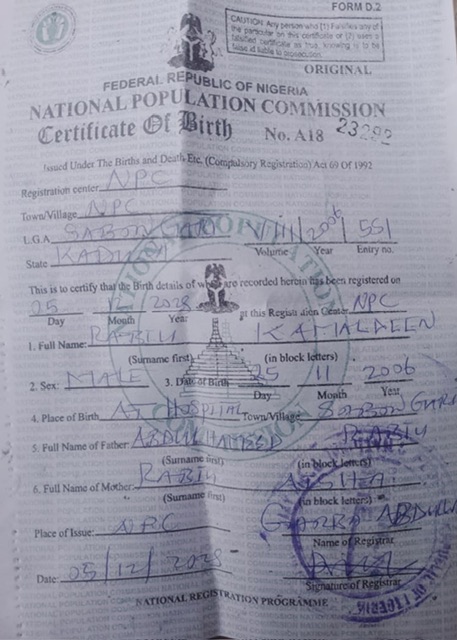 FORM D.2
CAUTION: Any person who (1) Falsifies any of the particular on this certificate or (2) uses a falsified certificate as true, knowing it to be false is liable to prosecution
ORIGINAL
FEDERAL REPUBLIC OF NIGERIA
NATIONAL POPULATION COMMISSION
Certificate Of Birth No. A18 23292
Issued Under The Births and Death Etc. (Compulsory Registration) Act 69 Of 1992
Registration center NPC
Town/Village NPC
L.G.A SABON GARI 2006 551
Volume Year Entry no.
State KADUNA
This is to certify that the Birth details of which are recorded herein has been registered on
05 12 at this Registration Center NPC
Day Month Year
1. Full Name: RABIU KAMALDEEN
(Surname first) (in block letters)
2. Sex: MALE 3. Date of Birth 25 11 2006
Day Month Year
4. Place of Birth HOSPITAL Town/Village SABON GARI
5. Full Name of Father: RABIU
(Surname first) (in block letters)
6. Full Name of Mother: RABIU
(Surname first) (in block letters)
Place of Issue: NPC
Name of Registrar
Date: 05/12/
Signature of Registrar
NATIONAL REGISTRATION PROGRAMME